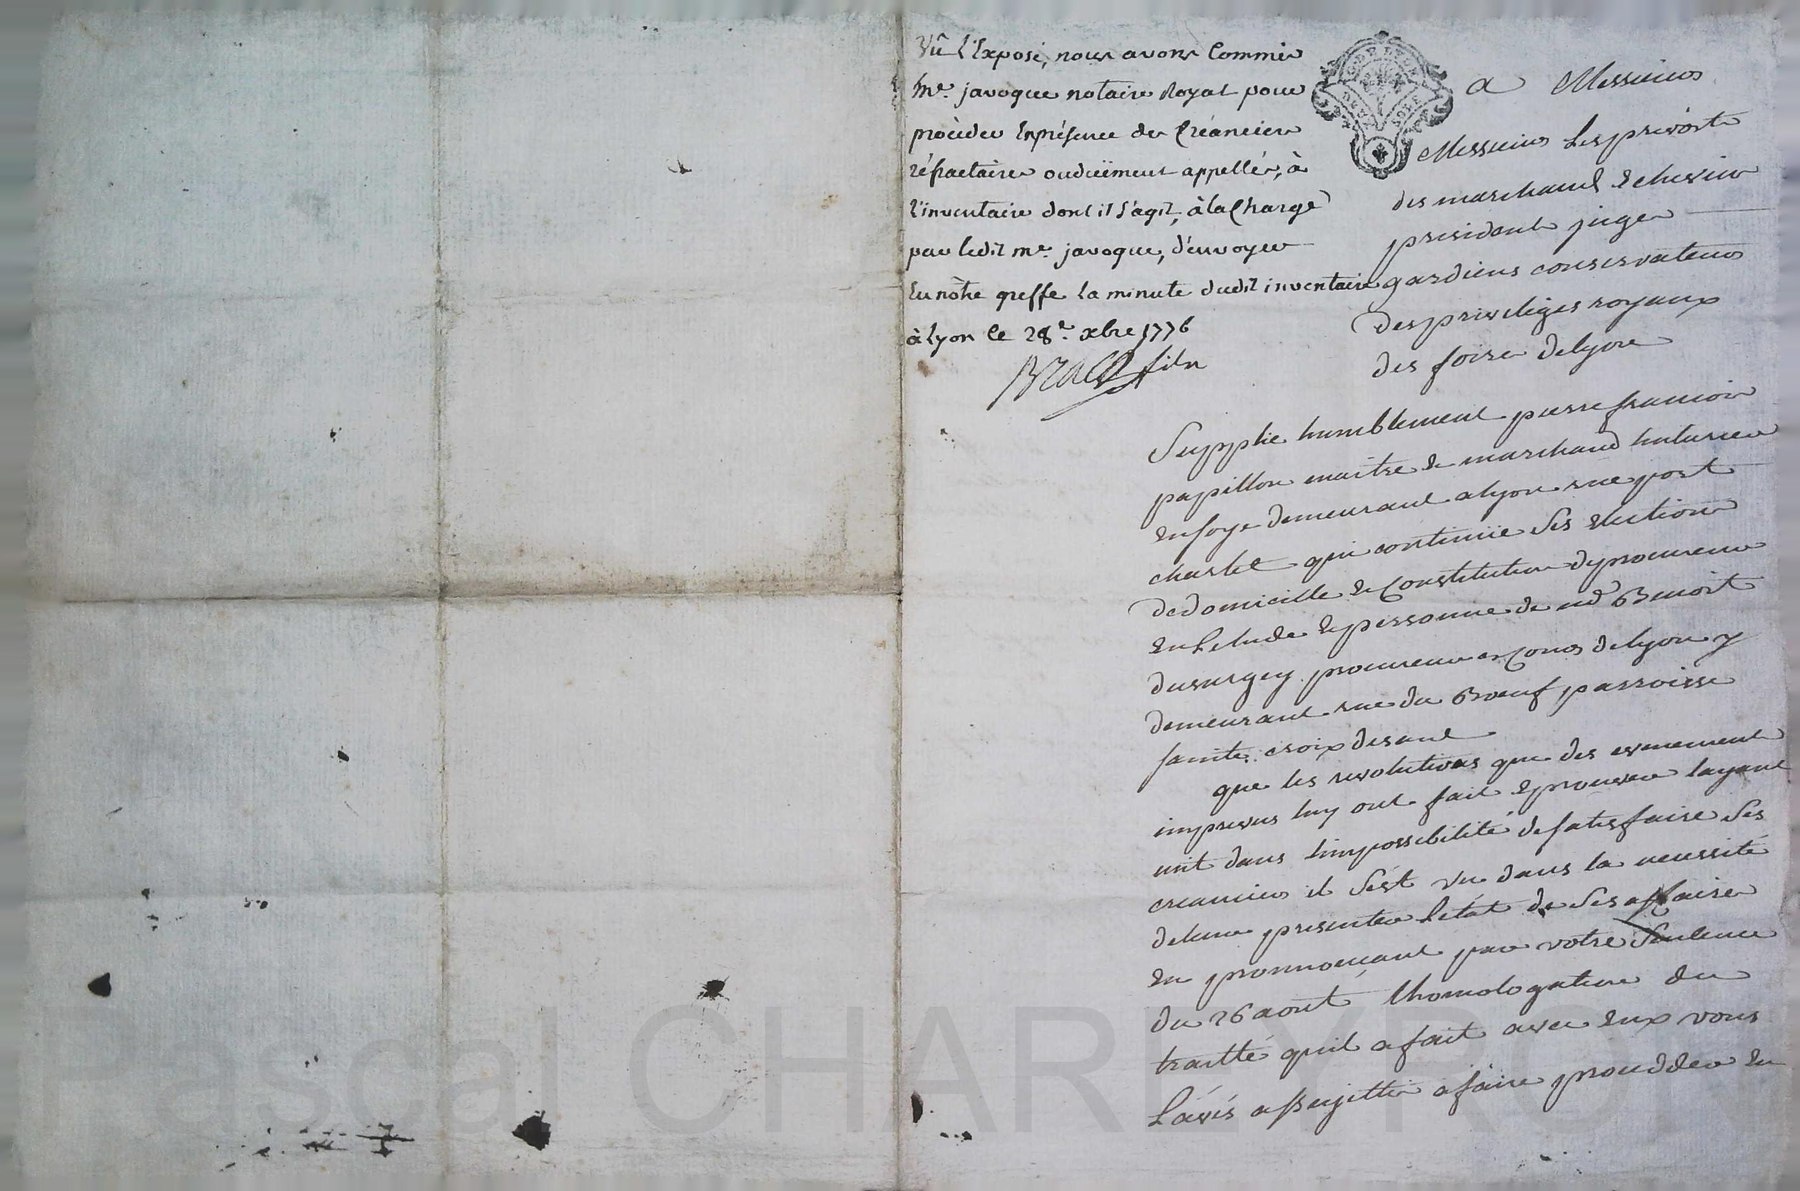 Vû l'Exposé, nous avons Commis
Me. javoque notaire Royal pour
procéder En présence des Créanciers
réfractaires ou duëment appellés, à
l'inventaire dont il s'agit, à la Charge
par ledit Me. javoque, d'envoyer
En nôtre greffe la minute dudit inventaire
à Lyon le 28e. xbre 1776
Brac fils
a Messieurs
Messieurs Les prevost
des marchand Echevins
président juges
gardiens conservateurs
des privileges royaux
des foires de lyon
Supplie humblement pierre francois
papillon maitre & marchand
en soye demeurant a lyon rue port
charlet qui continüe ses Elections
de domicille & Constitution de procureur
en Letude & personne de Benoit
procureur es Cours de lyon y
demeurant rue du Boeuf parroisse
sainte croix disant
que les revolutions que des evenement
imprevus luy ont fait Eprouver layant
mit dans limpossibilité de satisfaire ses
creanciers il s'est vu dans la necessité
de leur presenter L'état de ses affaires
en prononcant par votre Sentence
du 26 aout Lhomologation du
traitté quil a fait avec Eux vous
L'avés assujetti a faire proceder En
ascal CHARLEYRO